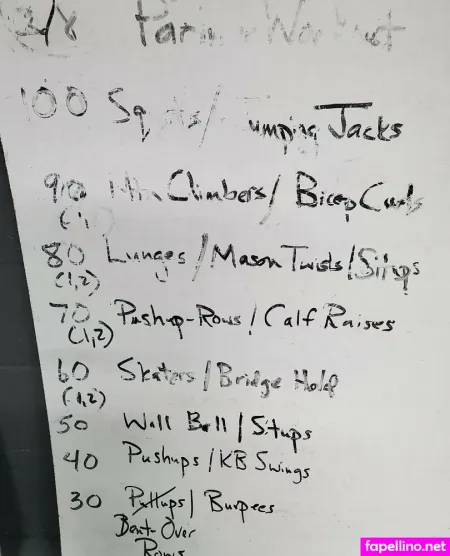 2/8 Partner Workout
100 Squats/Jumping Jacks
90 Mtn Climbers/Bicep Curls
80 Lunges/Mason Twists/Situps
(1,2)
70 Pushup-Rows/Calf Raises
(1,2)
60 Skaters/Bridge Hold
(1,2)
50 Wall Ball/Situps
40 Pushups/KB Swings
30 Pullups/Burpees
Bent Over
Rows
fapellino.net